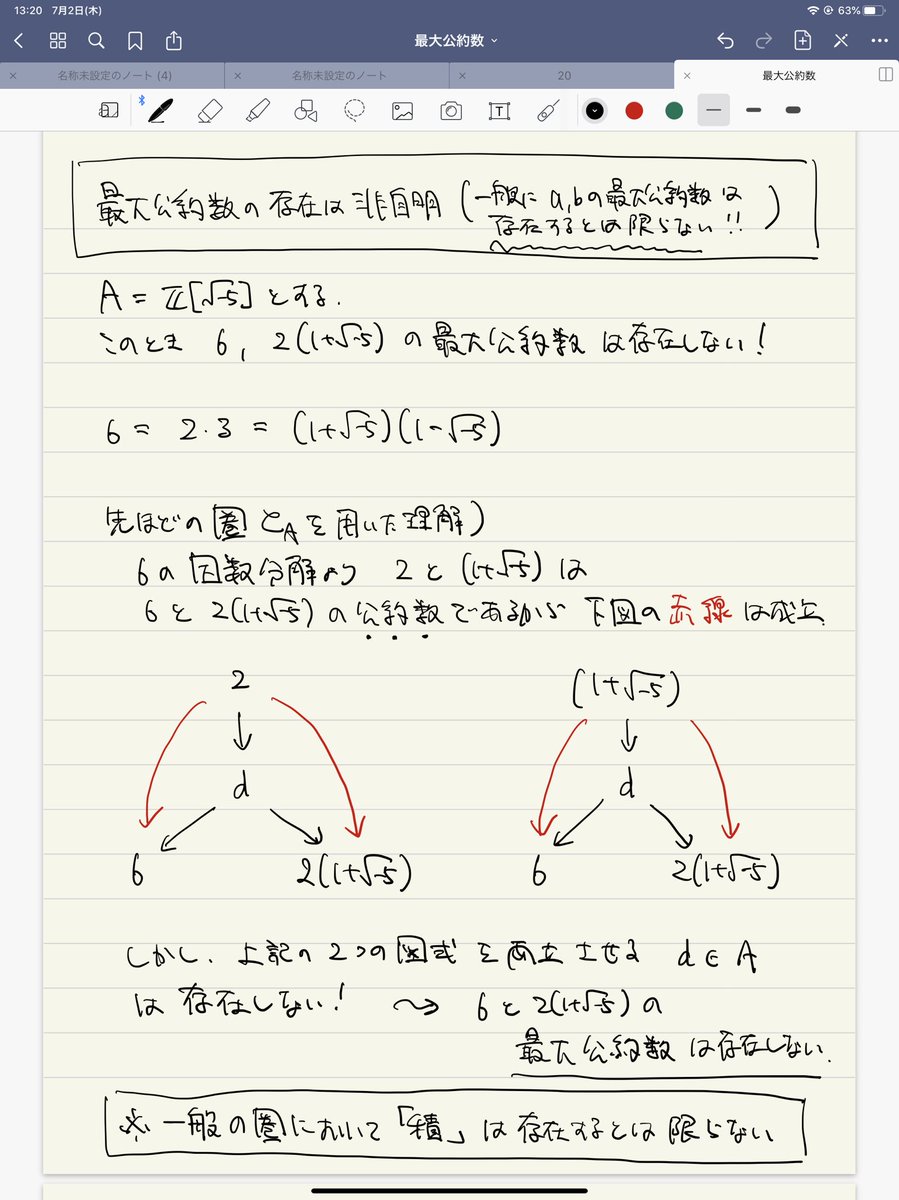 13:20 7月2日(木)
63%
最大公約数
名称未設定のノート (4)
名称未設定のノート
20
最大公約数
最大公約数の存在は非自明 (一般に a,bの最大公約数は
存在するとは限らない!!)
A = ℤ[√-5] とする.
このとき 6, 2(1+√-5) の最大公約数は存在しない!
6 = 2・3 = (1+√-5)(1-√-5)
先ほどの圏 C_A を用いた理解)
6の因数分解より 2と(1+√-5)は
6と2(1+√-5)の公約数であるから 下図の赤線は成立.
2
(1+√-5)
d
d
6
2(1+√-5)
6
2(1+√-5)
しかし、上記の2つの図式を両立させる d∈A
は存在しない! ⤳ 6と2(1+√-5)の
最大公約数は存在しない.
※ 一般の圏において「積」は存在するとは限らない